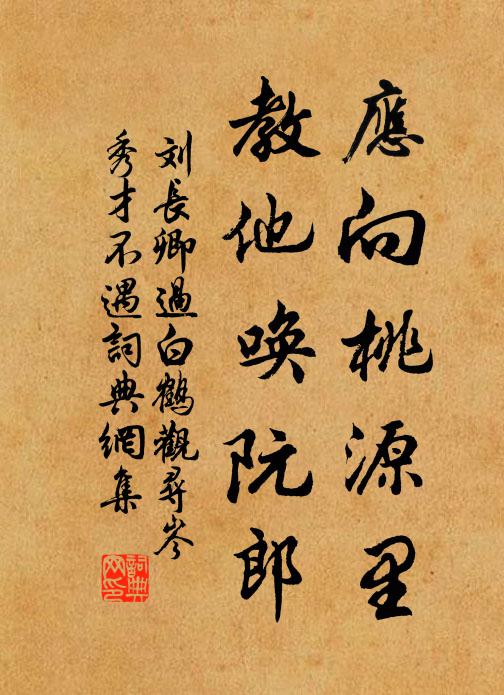 應向桃源里
教他喚阮郎
刘長卿過白鶴觀尋岑
秀才不遇詞典網集
詞典
网印